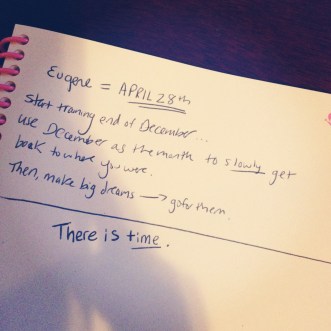 Eugene = APRIL 28th
Start training end of December...
use December as the month to slowly get
back to where you were.
Then, make big dreams → go for them.
There is time.